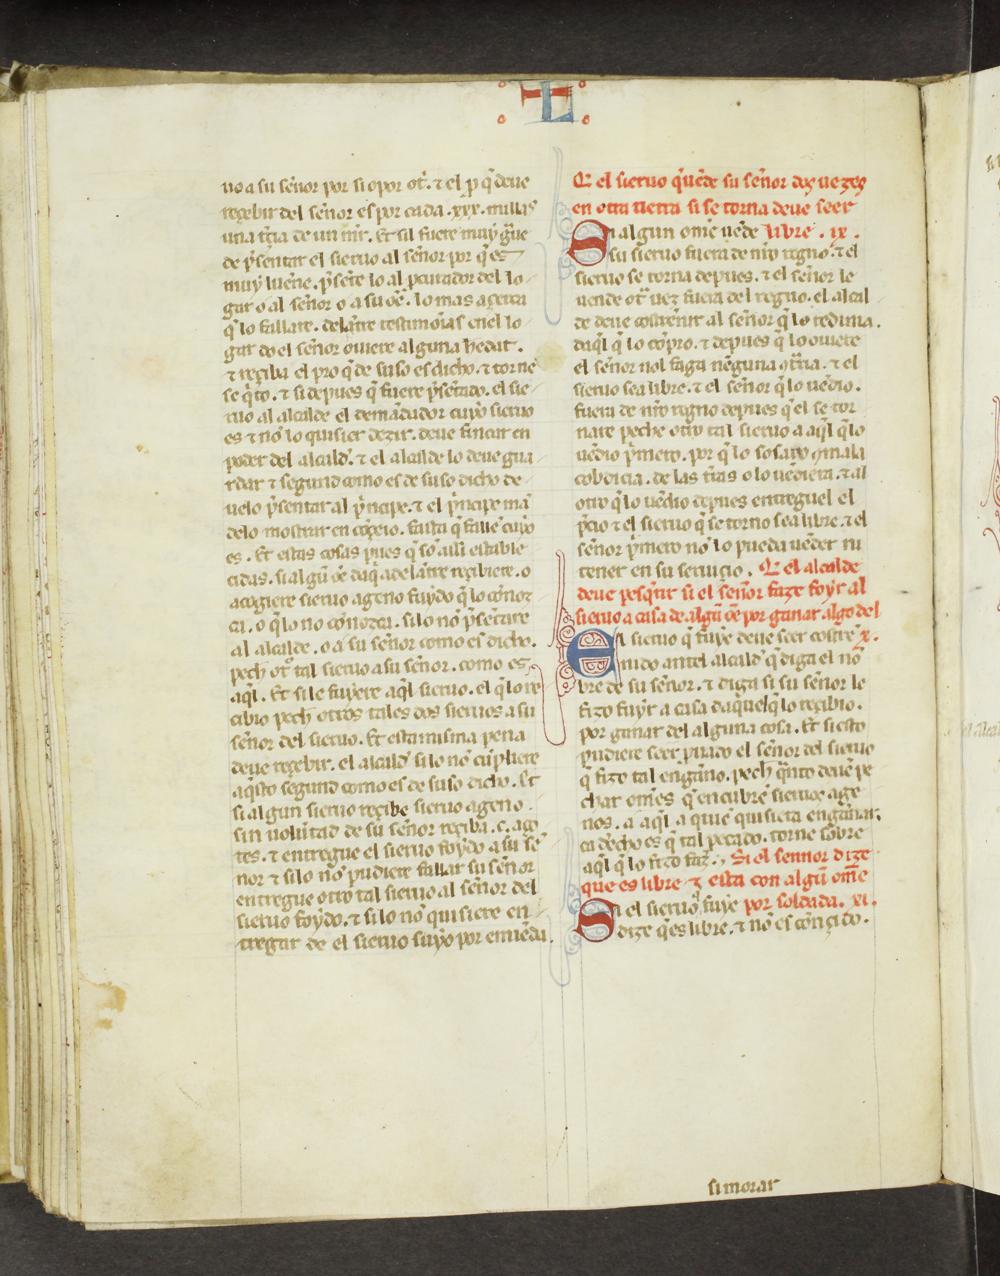 L
uo a su señor por si o por ot̃. ⁊ el p̃ q̃ deue
reçebir del señor es por cada .xxx. millas
una t̃çia de un mr̃. Et sil fuere muy g̃ue
de p̃sentar el sieruo al señor por q̃ es
muy luẽne. p̃sẽte lo al pecurador del lo
gar o al señor o a su oẽ. lo mas açerca
q̃ lo fallare. delãtre testimonias enel lo
gar do el señor ouiere alguna hedat.
⁊ reçiba el pro q̃ de suso es dicho. ⁊ torne
se q̃to. ⁊ si depues q̃ fuere p̃sẽtado. el sie
ruo al alcalde el demãdador cuyo sieruo
es ⁊ no lo quisier dezir. deue fincar en
poder del alcald̃. ⁊ el alcalde lo deue gua
rdar ⁊ segund como es de suso dicho de
uelo p̃sentar al p̃ncipe. ⁊ el p̃ncipe mã
delo mostrar en cõçeio. fasta q̃ falle cuyo
es. Et estas cosas pues q̃ sõ assi estable
cidas. si algũ oẽ daq̃ adelãtre reçibiere. o
acogiere sieruo ageno fuydo q̃ lo cõnoz
ca. o q̃ lo no cõnozca. si lo no p̃sẽtare
al alcalde. o a su señor como es dicho.
pech ot̃ tal sieruo a su señor. como es
aq̃l. Et si le fuyere aq̃l sieruo. el q̃ lo re
cibio pech ottos tales dos sieruos a su
señor del sieruo. Et esta misma pena
deue reçebir. el alcald̃ si lo no cũpliere
aq̃sto segund como es de suso dicho. Et
si algun sieruo reçibe sieruo ageno.
sin volũtad de su señor reçiba .c. aço
tes. ⁊ entregue el sieruo foydo a su se
nor ⁊ si lo no pudiere fallar su señor
entregue otro tal sieruo al señor del
sieruo foydo. ⁊ si lo no quisiere en
tregar de el sieruo suyo por emiẽda.
Q̃ el sieruo q̃ uẽde su señor dos uezes
en otra tierra si se torna deue seer
Si algun ome uẽde libre .ix.
su sieruo fuera de nr̃o regno. ⁊ el
sieruo se torna depues. ⁊ el señor le
uende ot̃ uez fuera del regno. el alcal
de deue costrenir al señor q̃ lo redima.
daq̃l q̃ lo cõpro. ⁊ depues q̃ lo ouiere
el señor nol faga nẽguna ꝯt̃ria. ⁊ el
sieruo sea libre. ⁊ el señor q̃ lo uẽdio.
fuera de nr̃o regno depues q̃ el se tor
nare peche otro tal sieruo a aq̃l q̃ lo
uẽdio p̃mero. por q̃ lo sosaco ꝯ mala
cobdicia. de las tr̃as o lo uẽdiera. ⁊ al
otro q̃ lo uẽdio depues entreguel el
p̃cio ⁊ el sieruo q̃ se torno sea libre. ⁊ el
señor p̃mero no lo pueda uẽder ni
tener en su seruiçio. Q̃ el alcalde
deue pesq̃rir si el señor faze foyr al
sieruo a casa de algũ oẽ por ganar algo del
El sieruo q̃ fuye deue seer costre x.
nido antel alcald̃ q̃ diga el nõ
bre de su señor. ⁊ diga si su señor le
fizo fuyr a casa daquel q̃ lo reçibio.
por ganar del alguna cosa. Et si esto
pudiere seer p̃uado el señor del sieruo
q̃ fizo tal engãno. pech q̃nto deuẽ pe
char omẽs q̃ encubrẽ sieruos age
nos. a aq̃l a quiẽ quisiera engañar.
ca dr̃echo es q̃ tal pecado. torne sobre
aq̃l q̃ lo fizo faz̃. Si el sennor dize
que es libre ⁊ esta con algũ ome
Si el sieruo q̃ fuye por soldada. xi.
dize q̃ es libre. ⁊ no es connçido.
si morar